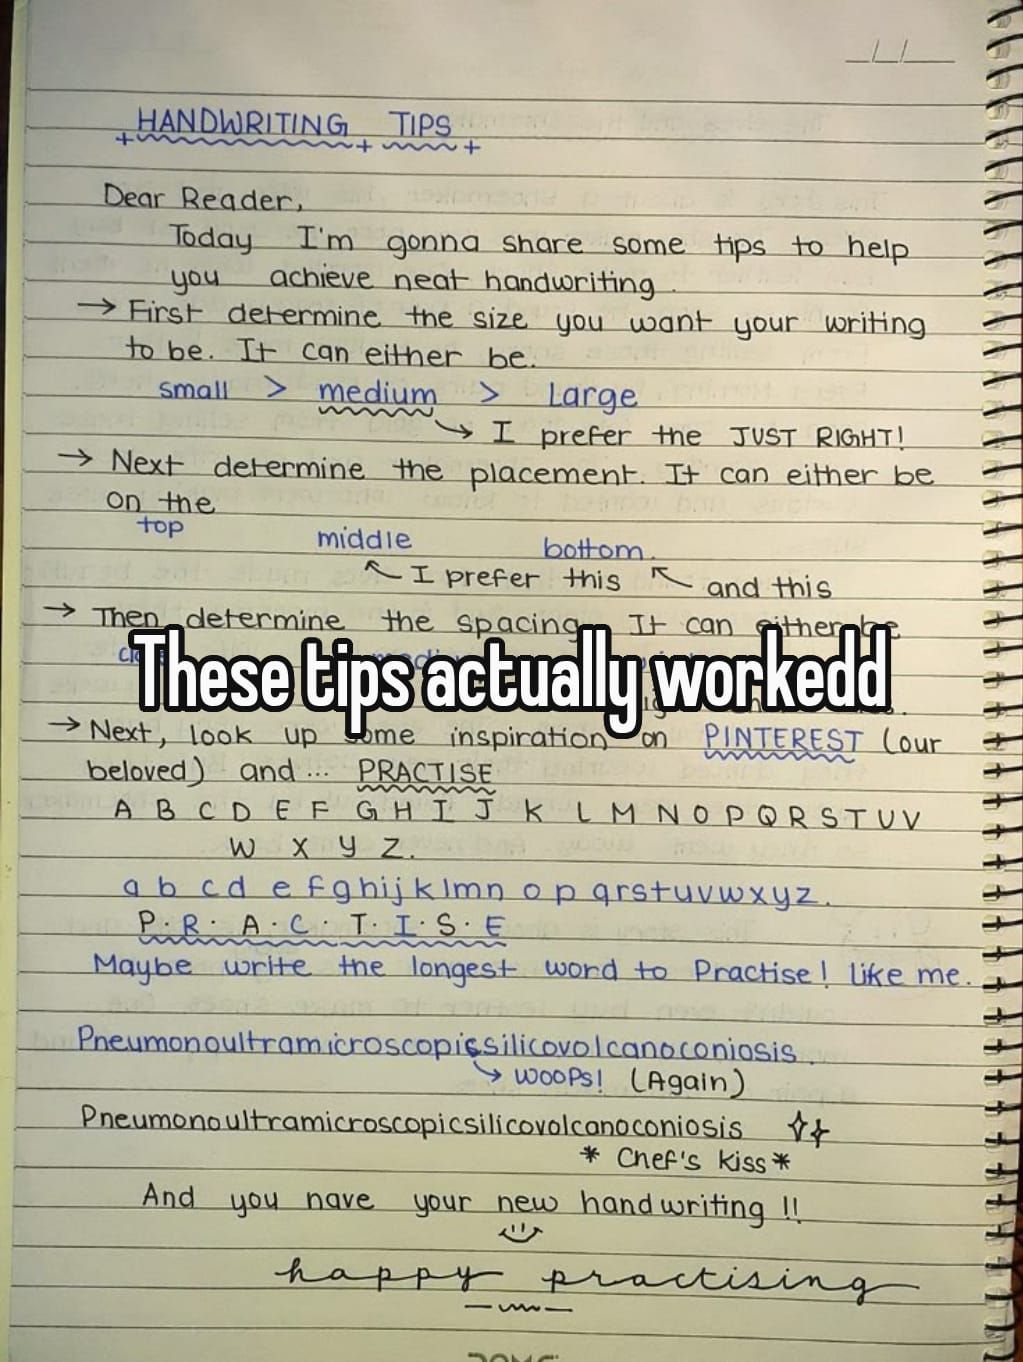 HANDWRITING TIPS
Dear Reader,
Today I'm gonna share some tips to help
you achieve neat handwriting.
→ First determine the size you want your writing
to be. It can either be.
small > medium > Large
↳ I prefer the JUST RIGHT!
→ Next determine the placement. It can either be
on the
top
middle bottom.
↖ I prefer this ↖ and this
→ Then determine the spacing. It can either be
These tips actually workedd
→ Next, look up some inspiration on PINTEREST (our
beloved) and... PRACTISE
A B C D E F G H I J K L M N O P Q R S T U V
W X Y Z.
a b c d e f g h i j k l m n o p q r s t u v w x y z.
P. R. A. C. T. I. S. E
Maybe write the longest word to Practise! like me.
Pneumonoultramicroscopicssilicovolcanoconiosis.
↳ WOOPS! (Again)
Pneumonoultramicroscopicsilicovolcanoconiosis
* Chef's kiss *
And you have your new handwriting !!
happy practising